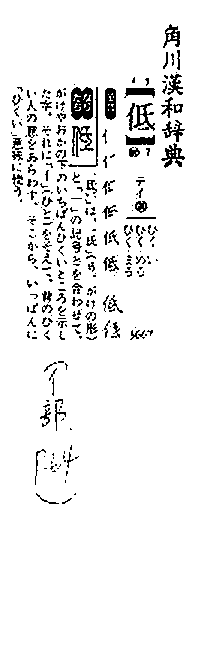 角川漢和辞典
低
テイ
ひくい
ひくめる
ひくまる
「氐」は、「氏」(がけの形)
と「一」の記号とを合わせて、
がけやおかの下のいちばんひくいところを示し
た字。それに「亻」(ひと)をそえて、背のひく
い人の意をあらわす。そこから、いっぱんに
「ひくい」意味に使う。
亻部
P64